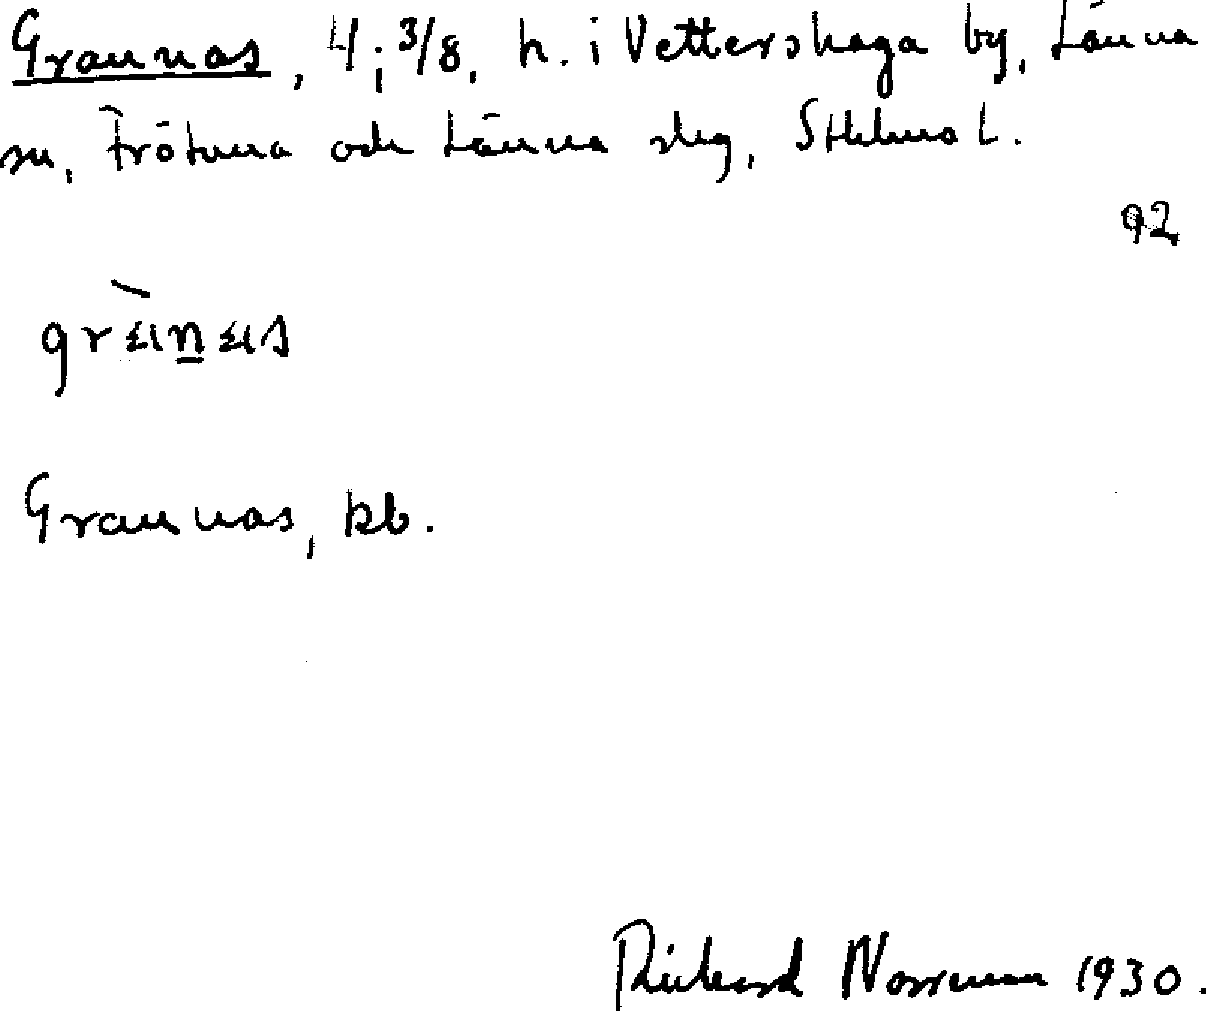 Grannas, 4; 3/8, h. i Vettershaga by, Länna
sn, Frötuna och Länna slg, Sthlms L.
92
Grannas, kb.
Rickard Norrman 1930.